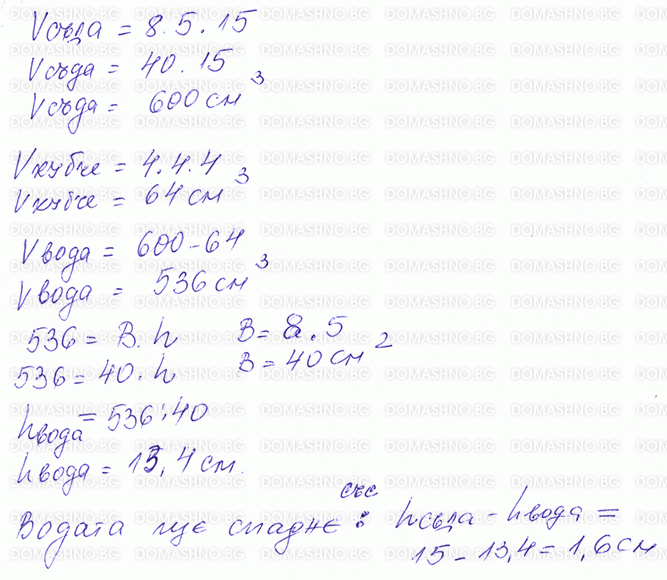 Vсъда = 8.5.15
Vсъда = 40.15
Vсъда = 600 см³
Vкубче = 4.4.4
Vкубче = 64 см³
Vвода = 600-64
Vвода = 536 см³
536 = B.h B = 8.5
536 = 40.h B = 40 см²
hвода = 536:40
hвода = 13,4 см.
Водата ще спадне със: hсъда - hвода =
15 - 13,4 = 1,6 см